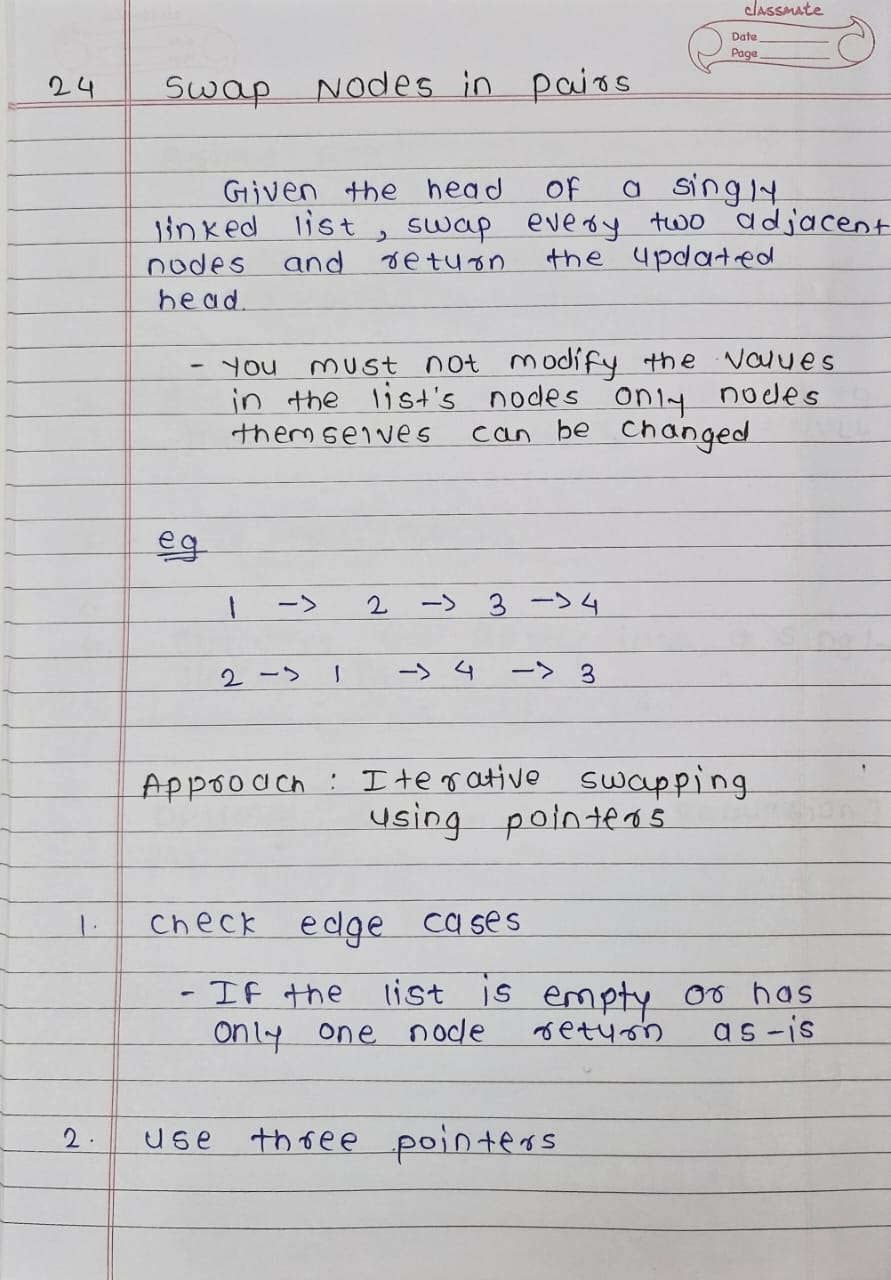 classmate
Date
Page
24 Swap Nodes in pairs
Given the head of a singly
linked list, swap every two adjacent
nodes and return the updated
head.
- You must not modify the values
in the list's nodes only nodes
themselves can be changed
eg
1 -> 2 -> 3 -> 4
2 -> 1 -> 4 -> 3
Approach : Iterative swapping
using pointers
1. check edge cases
- If the list is empty or has
only one node return as-is
2. use three pointers